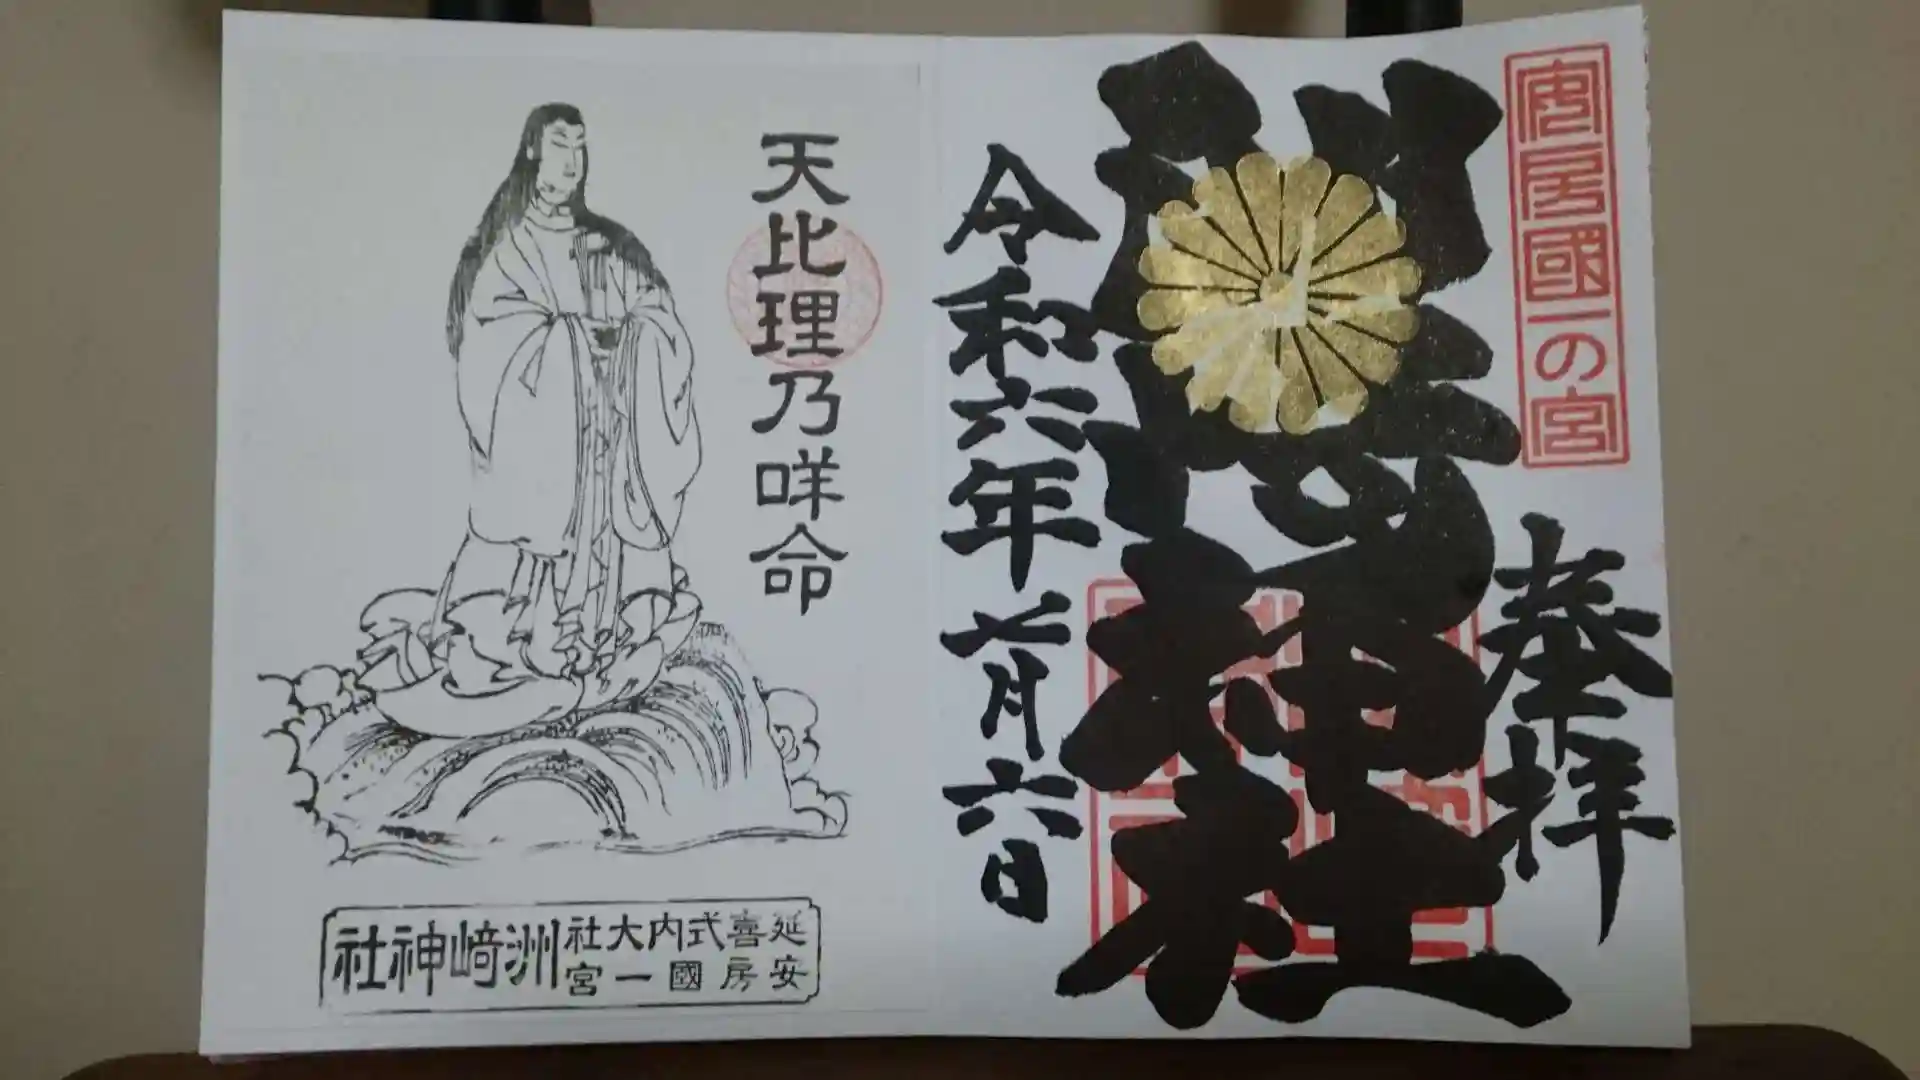 安房國一の宮
奉拝
洲崎神社
令和六年七月六日
天比理乃咩命
延喜式内大社
安房國一宮
洲﨑神社